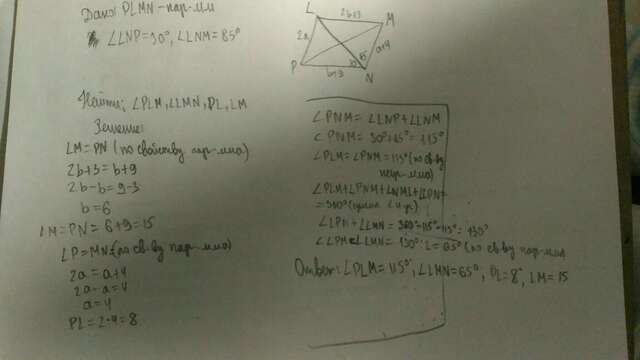 Дано: PLMN-пар-мм
∠LNP=30°, ∠LNM=85°
L
2b+3
M
2a
a+4
P
b+9
30
85
N
Найти: ∠PLM, ∠LMN, PL, LM
Решение:
LM=PN (по свойству пар-мма)
2b+3=b+9
2b-b=9-3
b=6
LM=PN=6+9=15
LP=MN (по св-ву пар-мма)
2a=a+4
2a-a=4
a=4
PL=2·4=8
∠PNM=∠LNP+∠LNM
∠PNM=30°+85°=115°
∠PLM=∠PNM=115° (по св-ву
пар-мма)
∠PLM+∠PNM+∠NML+∠LPN=
=360° (сумма ∠ 4-уг)
∠LPN+∠LMN=360°-115°-115°=130°
∠LPN=∠LMN=130°:2=65° (по св-ву пар-мма
Ответ: ∠PLM=115°, ∠LMN=65°, PL=8, LM=15